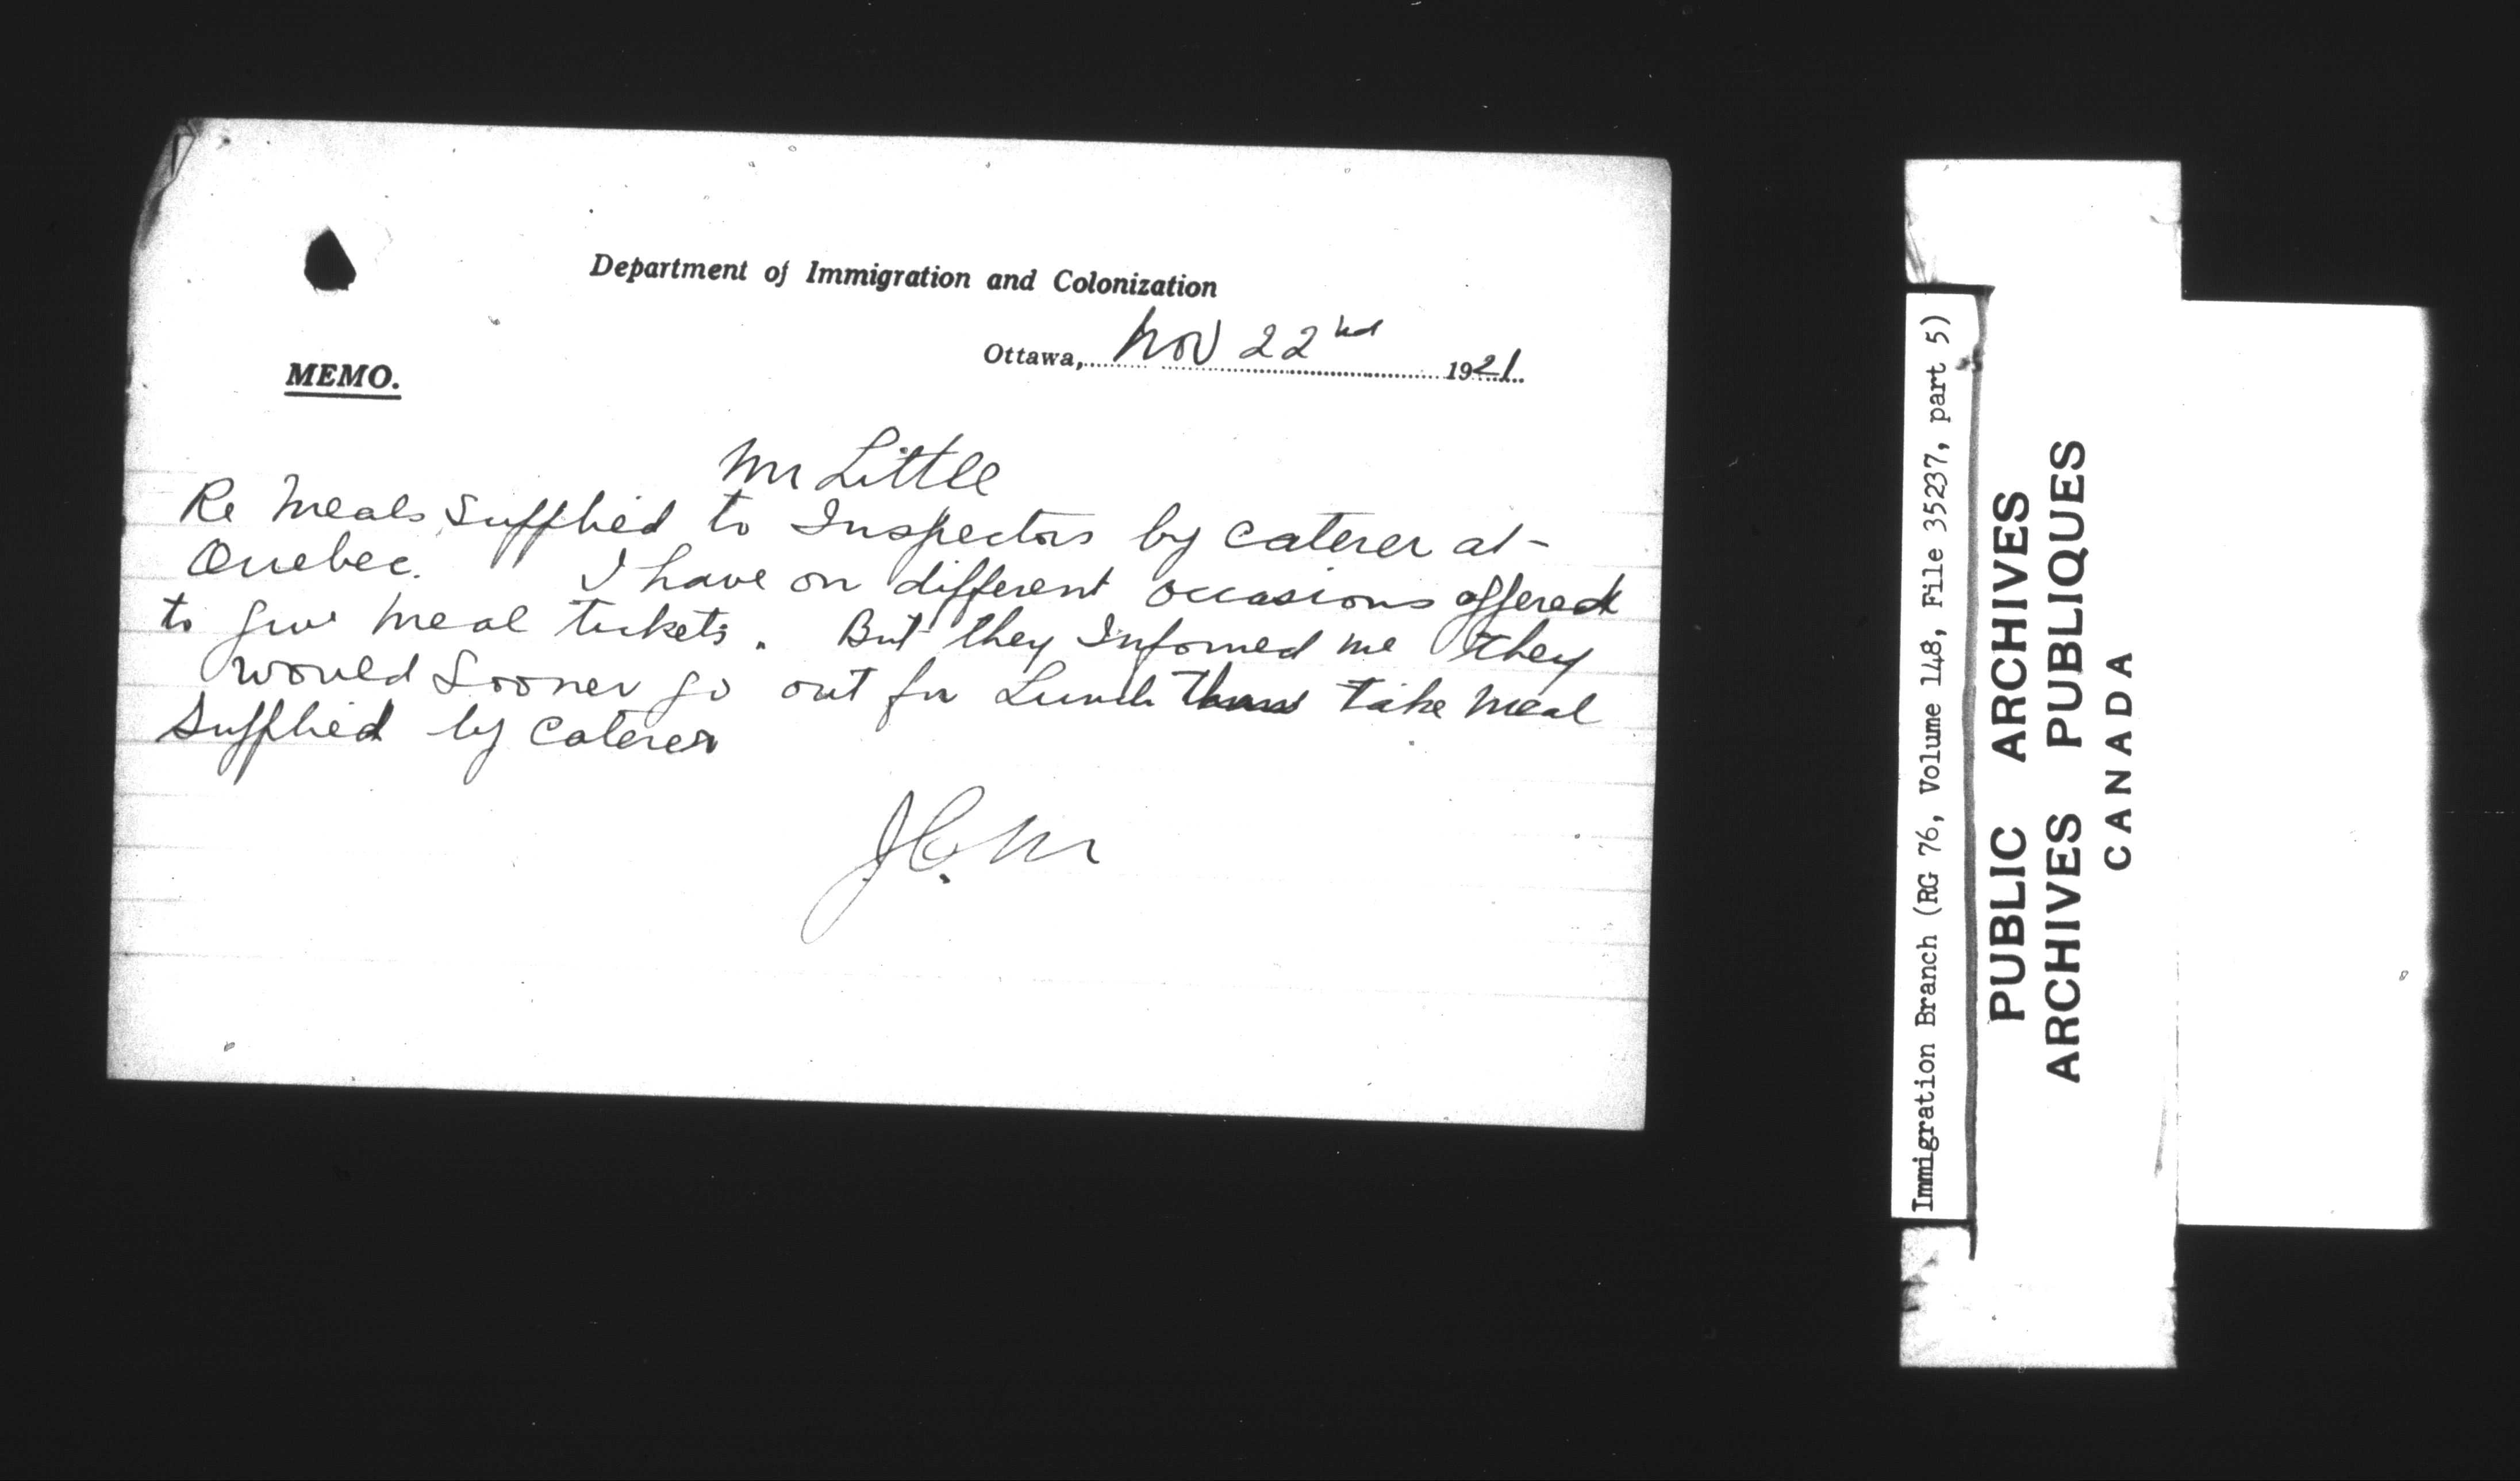 Department of Immigration and Colonization
Ottawa, Nov 22nd 1921.
MEMO.
Mr Little
Re Meals Supplied to Inspectors by Caterer at
Quebec. I have on different occasions offered
to give meal tickets. But they Informed me they
would Sooner go out for Lunch than take meal
Supplied by Caterer
J.C.M
Immigration Branch (RG 76, Volume 148, File 35237, part 5)
PUBLIC ARCHIVES
ARCHIVES PUBLIQUES
CANADA